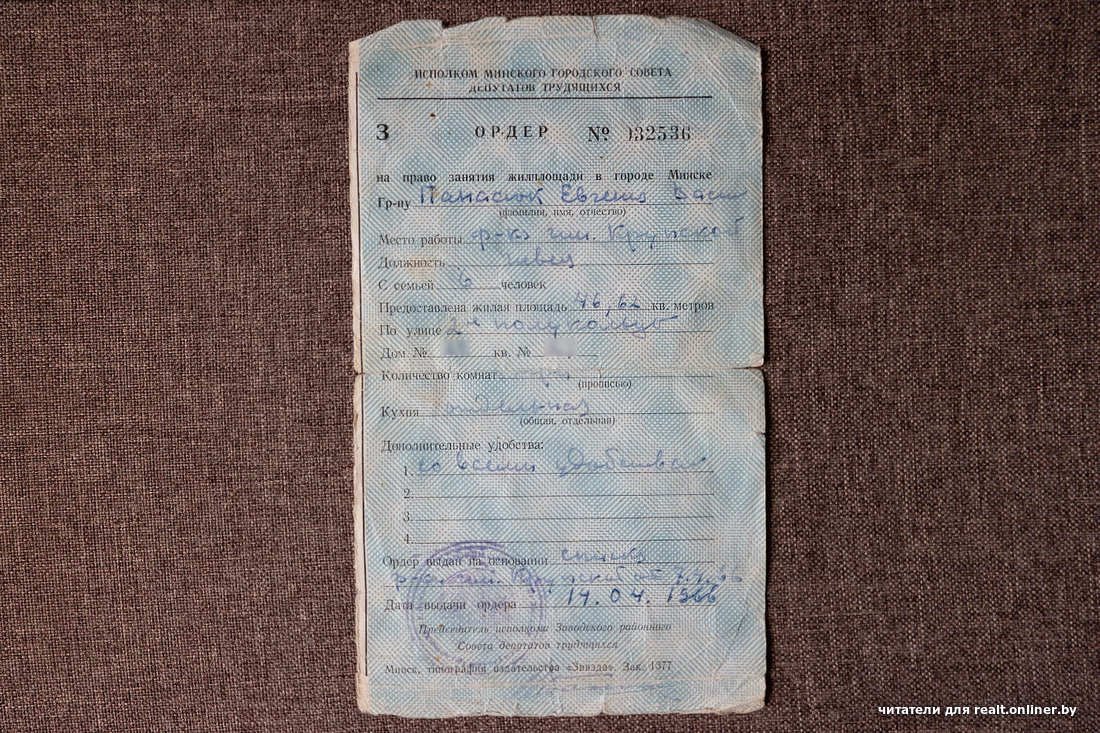 ИСПОЛКОМ МИНСКОГО ГОРОДСКОГО СОВЕТА
ДЕПУТАТОВ ТРУДЯЩИХСЯ
З ОРДЕР № 032536
на право занятия жилплощади в городе Минске
Гр-ну Панасюк Евгения
(фамилия, имя, отчество)
Место работы ф-ка им. Крупской
Должность швея
С семьей 6 человек
Предоставлена жилая площадь 46,62 кв. метров
По улице 2
Дом № кв. №
Количество комнат
(прописью)
Кухня отдельная
(общая, отдельная)
Дополнительные удобства:
1. со всеми удобствами
2
3.
4.
Ордер выдан на основании списка
ф-ки им. Крупской от
Дата выдачи ордера 14.04.1966
Председатель исполкома Заводского районного
Совета депутатов трудящихся
Минск, типография издательства «Звязда». Зак. 1377
читатели для realt.onliner.by